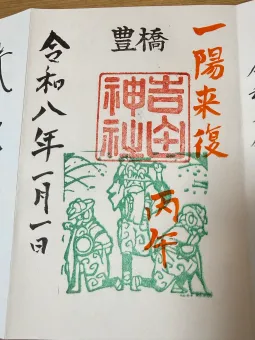 一陽来復
豊橋
吉田
神社
丙午
令和八年一月一日